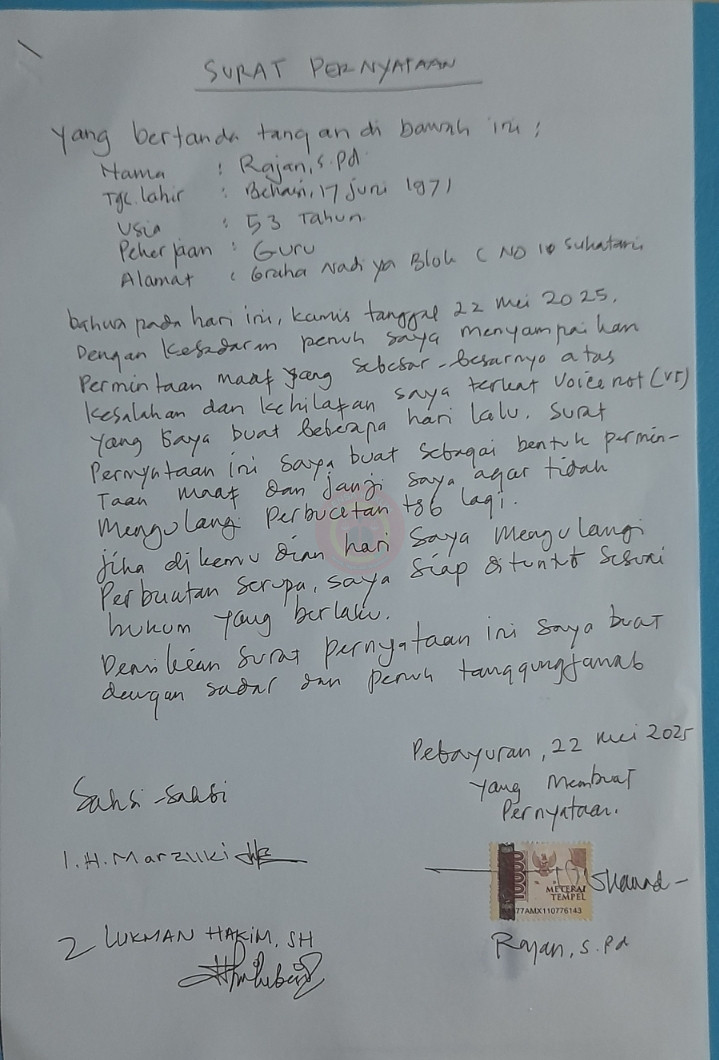 SURAT PERNYATAAN
Yang bertanda tangan di bawah ini :
Nama : Rajan, S.Pd
Tgl. lahir : Bekasi, 17 Juni 1971
Usia : 53 Tahun
Pekerjaan : Guru
Alamat : Graha Nadiya Blok C NO 10 Sukatani
bahwa pada hari ini, Kamis tanggal 22 Mei 2025.
Dengan kesadaran penuh saya menyampaikan
Permintaan maaf yang sebesar-besarnya atas
kesalahan dan kekilafan saya terkait Voice not (VT)
yang saya buat beberapa hari lalu. Surat
Pernyataan ini saya buat sebagai bentuk permin-
Taan maaf dan janji saya agar tidak
Mengulang Perbuatan tsb lagi.
Jika dikemudian hari saya mengulangi
Perbuatan serupa, saya siap dituntut sesuai
hukum yang berlaku.
Demikian surat pernyataan ini saya buat
dengan sadar dan penuh tanggungjawab
Pebayuran, 22 Mei 2025
Yang Membuat
Pernyataan.
Saksi-saksi
1. H. Marzuki
10000
METERAI
TEMPEL
77AMX110776143
2 LUKMAN HAKIM, SH
Rajan, S.Pd